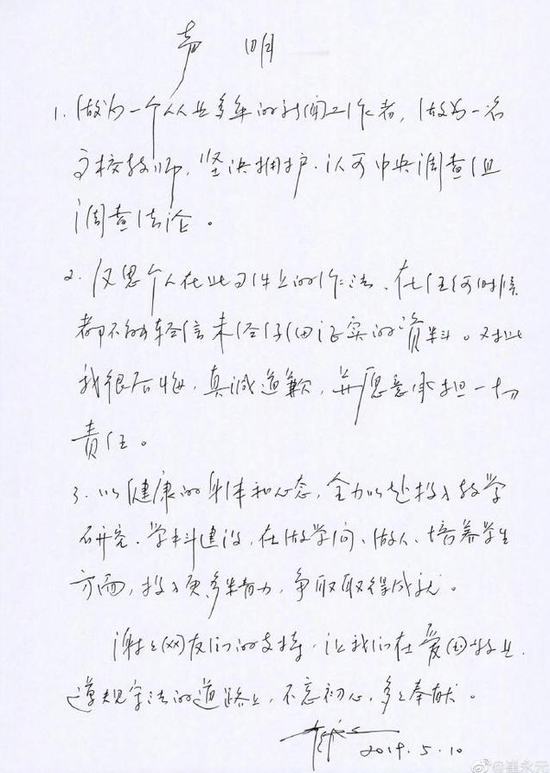 声 明
1. 做为一个从业多年的新闻工作者，做为一名
高校教师，坚决拥护、认可中央调查组
调查结论。
2. 反思个人在此事件上的作法，在任何时候
都不能轻信未经仔细证实的资料。对此
我很后悔，真诚道歉，并愿意承担一切
责任。
3. 以健康的身体和心态，全力以赴投入教学
研究、学科建设，在做学问、做人、培养学生
方面，投入更多精力，争取取得成就。
谢谢网友们的支持，让我们在爱国敬业、
遵规守法的道路上，不忘初心，多多奉献。
2019.5.10
@崔永元